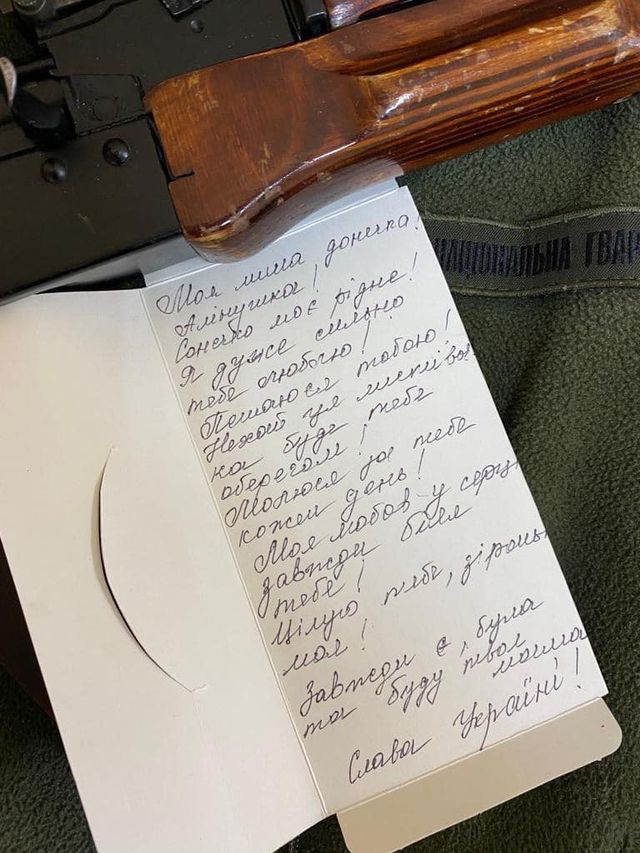 НАЦІОНАЛЬНА ГВАР
Моя мила донечка!
Алінушка!
Сонечко моє рідне!
Я дуже сильно
тебе люблю!
Пишаюся тобою!
Нехай ця
на буде тебе
оберегом!
Молюся за тебе
кожен день!
Моя любов у серці
завжди біля
тебе!
Цілую тебе, зіронь
моя!
Завжди є, була
та буду твоя
мама
Слава Україні!